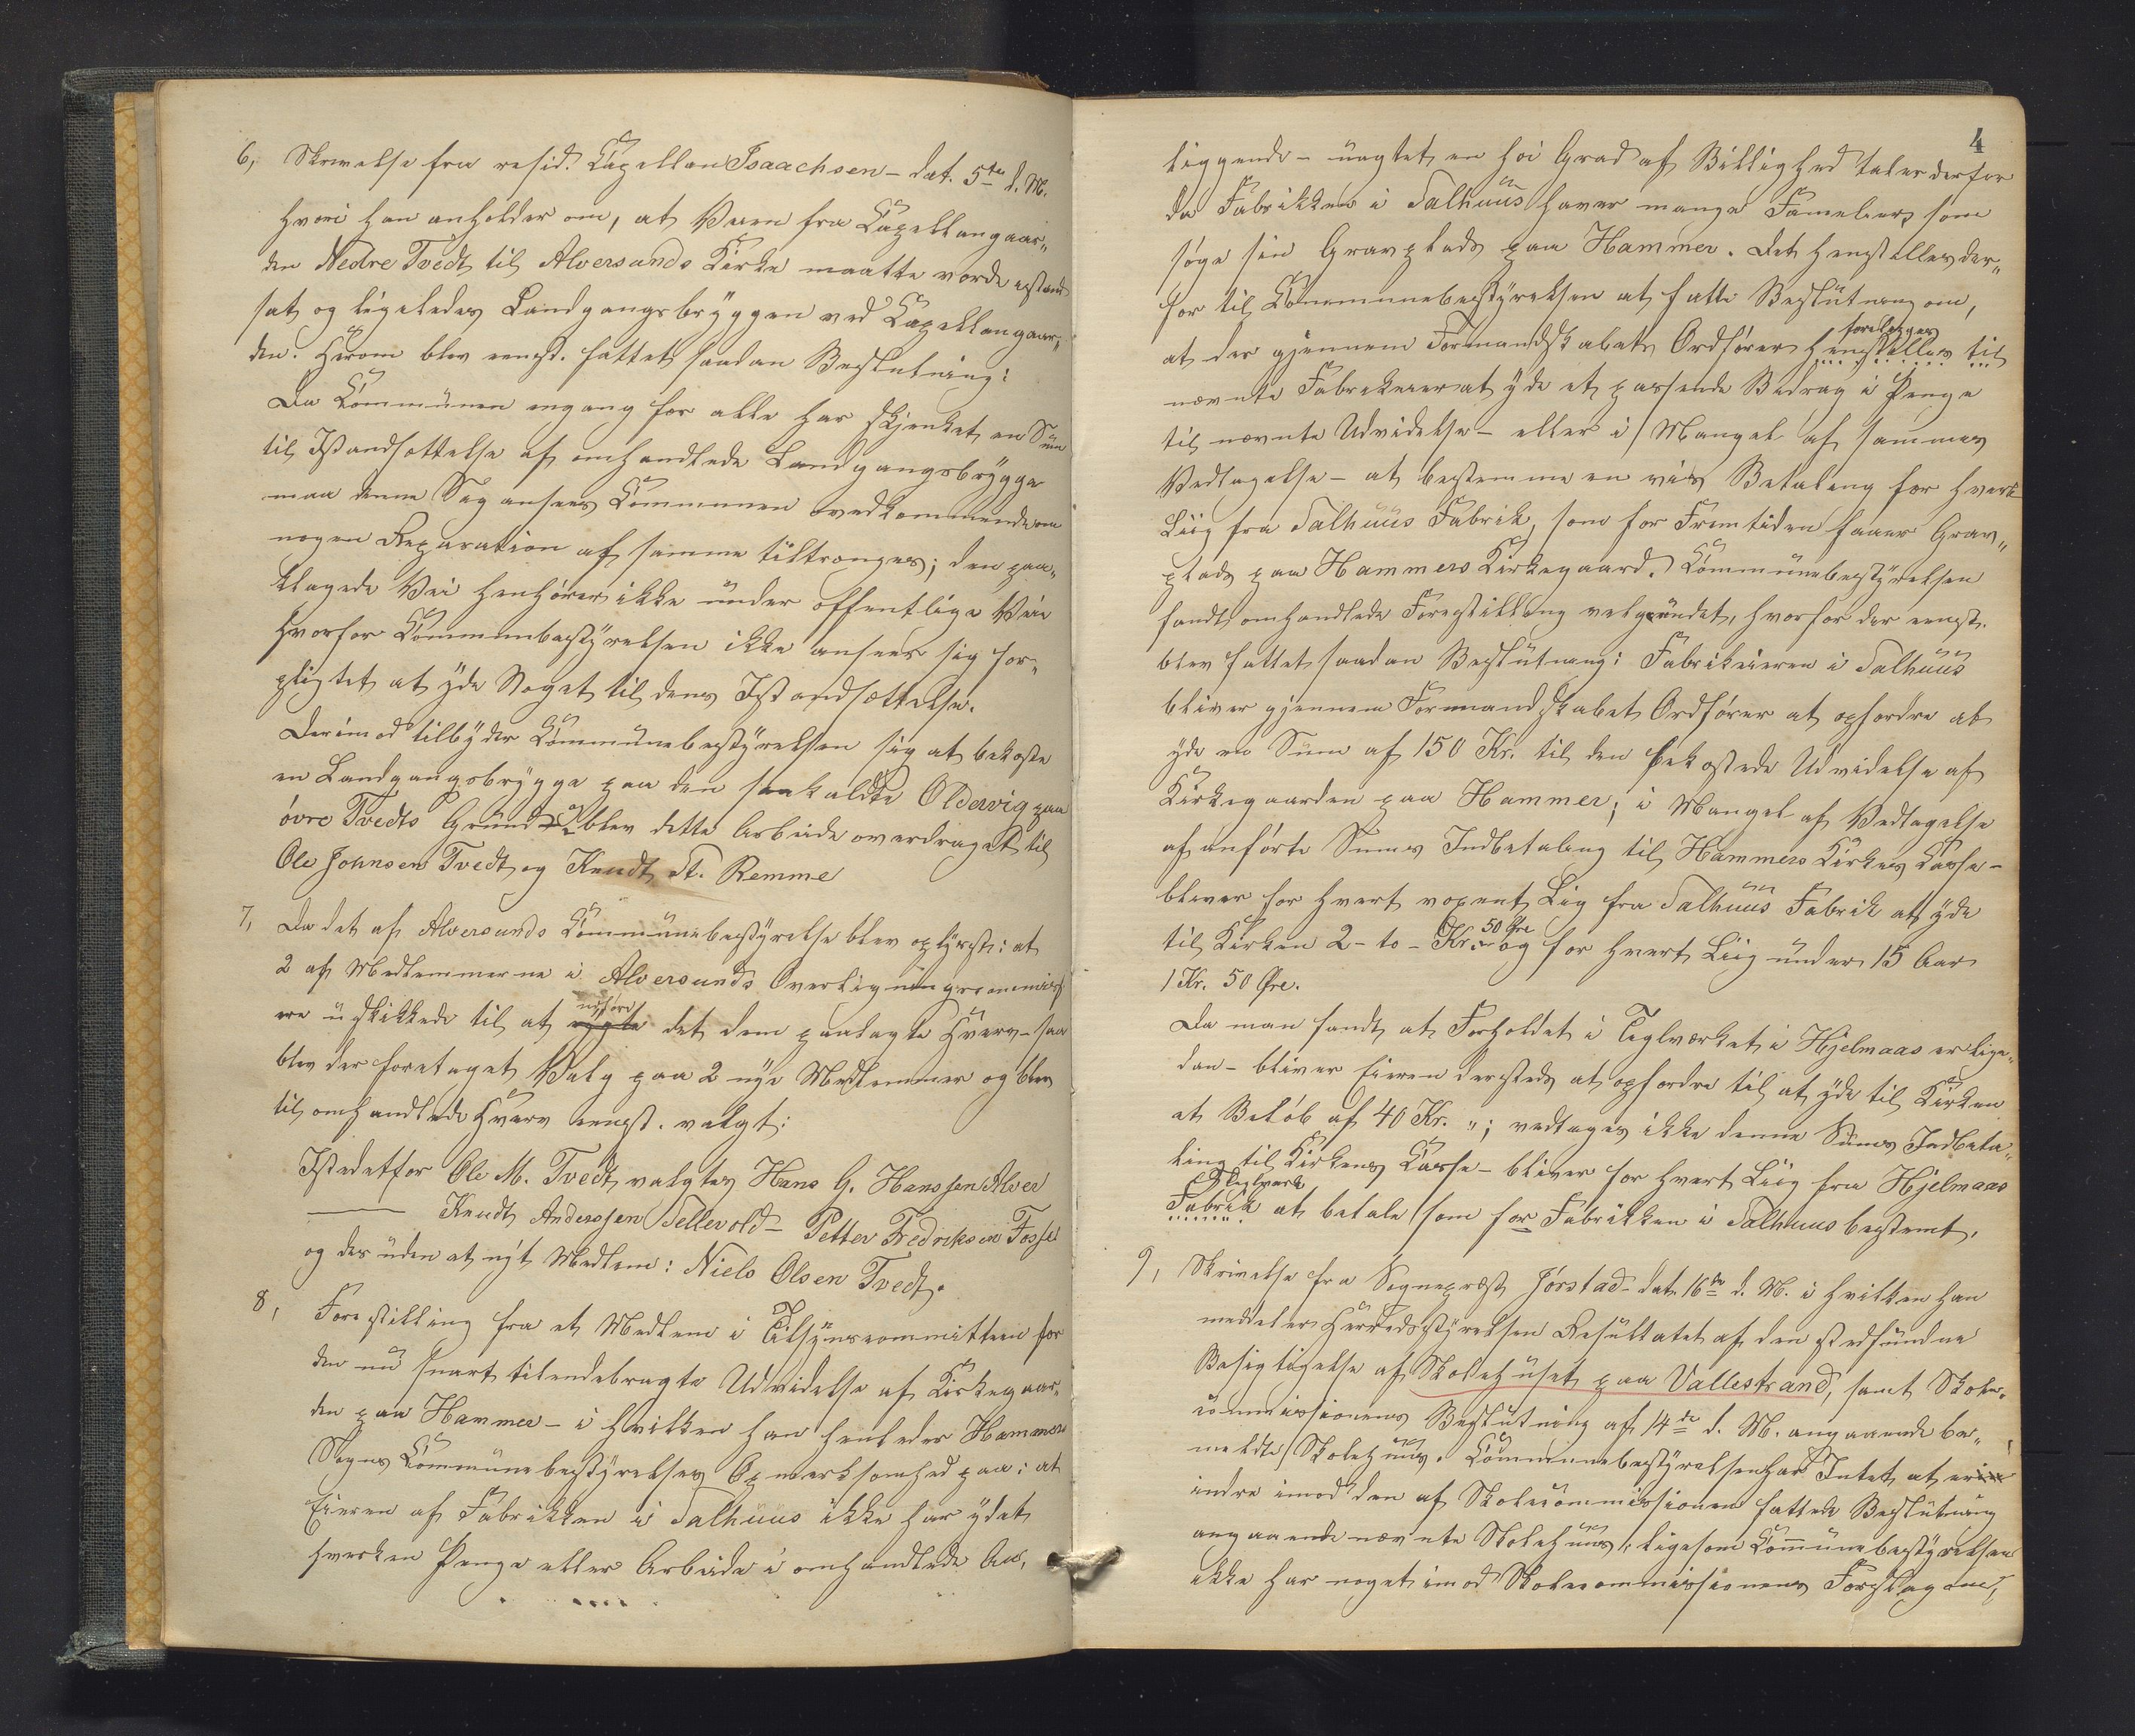 6, Skrivelse fra resid. Capellan Isaachsen – dat. 5te d. M.
hvori han anholder om, at Veien fra Capellangaar„
den Nedre Tvedt til Alversunds Kirke maatte vorde istand
sat og ligeledes Landgangsbryggen ved Capellangaar„
den. Herom blev eenst. fattet saadan Beslutning:
Da Kommunen engang for alle har skjenket en Sum
til Istandsættelse af omhandlede Landgangsbrygge
maa denne Sag ansees Kommunen uvedkommende om
nogen Reparation af samme tiltrænges; den paa„
klagede Vei henhører ikke under offentlige Veie
hvorfor Kommunebestyrelsen ikke anseer sig for„
pligtet at yde Noget til dens Istandsættelse.
Derimod tilbyder Kommunebestyrelsen sig at bekoste
en Landgangsbrygge paa den saakaldte Oldervig paa
övre Tvedts Grund og blev dette Arbeide overdraget til
Ole Johnsen Tvedt og Knudt A. Remme
7, Da det af Alversunds Kommunebestyrelse blev oplyst: at
2 af Medlemmerne i Alversunds Overligningscommiss
ere uskikkede til at udføre det dem paalagte Hverv – saa
blev der foretaget Valg paa 2 nye Medlemmer og blev
til omhandlede Hverv eenst. valgt:
Istedetfor Ole M. Tvedt valgtes Hans G. Hanssen Alver
Knudt Anderssen Tellevold – Petter Fredriksen Fosse
og desuden et nyt Medlem: Niels Olsen Tvedt.
8, Forestilling fra et Medlem i Tilsynscommitteen for
den nu snart tilendebragte Udvidelse af Kirkegaar„
den paa Hammer – i hvilken han henleder Hammers
Sogns Kommunebestyrelses Opmerksomhed paa: at
Eieren af Fabrikken i Salhuus ikke har ydet
hverken Penge eller Arbeide i omhandlede An„
4
liggende – uagtet en høi Grad af Billighed taler derfor
da Fabrikken i Salhuus haver mange Familier som
søge sin Gravplads paa Hammer. Det henstilles der„
for til Kommunebestyrelsen at fatte Beslutning om,
forelægges
at der gjennem Formandskabets Ordfører henstilles til
nævnte Fabrikeier at yde et passende Bidrag i Penge
til nævnte Udvidelse – eller i Mangel af sammes
Vedtagelse – at bestemme en vis Betaling for hvert
Liig fra Salhuus Fabrik, som for Fremtiden faaer Grav„
plads paa Hammers Kirkegaard. Kommunebestyrelsen
fandt omhandlede Forestilling velgrundet, hvorfor der eenst.
blev fattet saadan Beslutning: Fabrikeieren i Salhuus
bliver gjennem Formandskabets Ordfører at opfordre at
yde en Sum af 150 Kr. til den bekostede Udvidelse af
Kirkegaarden paa Hammer; i Mangel af Vedtagelse
af anførte Sums Indbetaling til Hammers Kirkes Kasse –
bliver for hvert voxent Lig fra Salhuus Fabrik at yde
til Kirken 2 – to – Kr. 50 Øre og for hvert Liig under 15 Aar
1 Kr. 50 Øre.
Da man fandt at Forholdet i Teglværket i Hjelmaas er lige„
dan – bliver Eieren dersteds at opfordre til at yde til Kirken
et Beløb af 40 Kr. „; vedtages ikke denne Sums Indbeta„
ling til Kirkens Kasse – bliver for hvert Liig fra Hjelmaas
Teglværk
Fabrik at betale som for Fabrikken i Salhuus bestemt.
9, Skrivelse fra Sognepræst Jörstad – dat. 16de d. M. i hvilken han
meddeler Herredsstyrelsen Resultatet af den stedfundne
Besigtigelse af Skolehuset paa Vallestrand, samt Skole„
commissionens Beslutning af 14de d. M. angaaende be„
meldte Skolehuus. Kommunebestyrelsen har Intet at er
indre imod den af Skolecommissionen fattede Beslutning
angaaende nævnte Skolehuus; ligesom Kommunebestyrelsen
ikke har noget imod Skolecommissionens Forslag om,